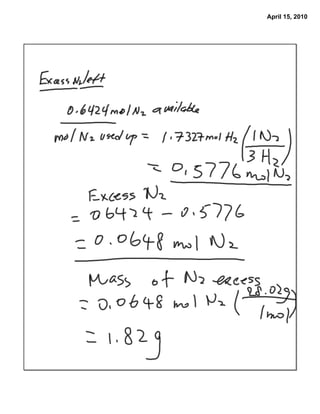 April 15, 2010
Exass N₂ left
0.6424 mol N₂ available
mol N₂ used up = 1.7327 mol H₂ (1 N₂ / 3 H₂)
= 0.5776 mol N₂
Excess N₂
= 06424 - 0.5776
= 0.0648 mol N₂
Mass of N₂ excess
= 0.0648 mol N₂ (28.02g / 1mol)
= 1.82g